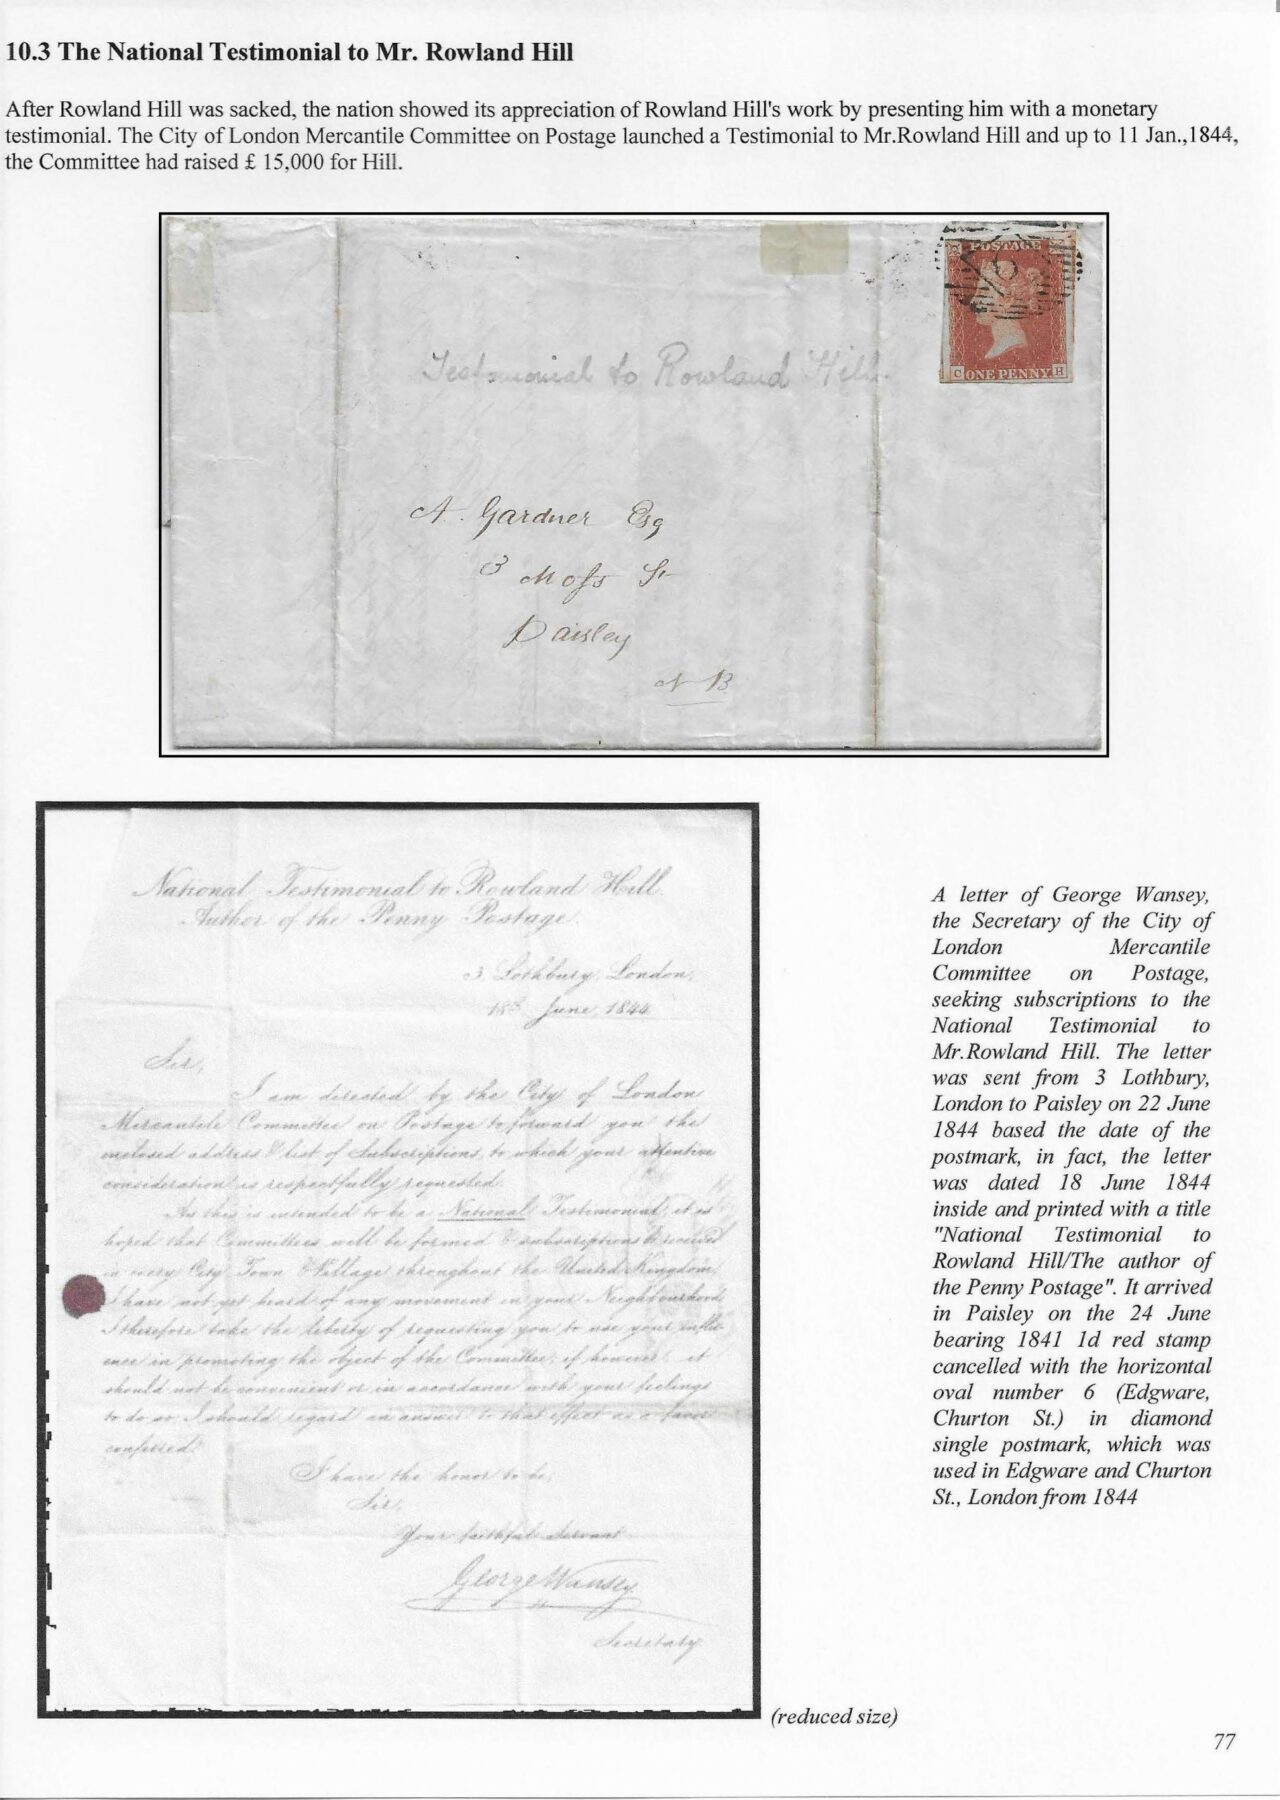 10.3 The National Testimonial to Mr. Rowland Hill
After Rowland Hill was sacked, the nation showed its appreciation of Rowland Hill's work by presenting him with a monetary
testimonial. The City of London Mercantile Committee on Postage launched a Testimonial to Mr.Rowland Hill and up to 11 Jan.,1844,
the Committee had raised £ 15,000 for Hill.
POSTAGE
C ONE PENNY H
Testimonial to Rowland Hill.
A. Gardner Esq
3 Moss St
Paisley
N B
National Testimonial to Rowland Hill
Author of the Penny Postage.
3 Lothbury, London,
18th June, 1844
Sir,
I am directed by the City of London
Mercantile Committee on Postage to forward you the
enclosed address & list of Subscriptions, to which your attentive
consideration is respectfully requested.
As this is intended to be a National Testimonial, it is
hoped that Committees will be formed & subscriptions received
in every City Town & Village throughout the United Kingdom,
I have not yet heard of any movement in your Neighbourhood
I therefore take the liberty of requesting you to use your influ-
ence in promoting the object of the Committee; if, however, it
should not be convenient or in accordance with your feelings
to do so I should regard an answer to that effect as a favor
conferred.
I have the honor to be,
Sir,
Your faithful Servant
George Wansey
Secretary
A letter of George Wansey,
the Secretary of the City of
London Mercantile
Committee on Postage,
seeking subscriptions to the
National Testimonial to
Mr.Rowland Hill. The letter
was sent from 3 Lothbury,
London to Paisley on 22 June
1844 based the date of the
postmark, in fact, the letter
was dated 18 June 1844
inside and printed with a title
"National Testimonial to
Rowland Hill/The author of
the Penny Postage". It arrived
in Paisley on the 24 June
bearing 1841 1d red stamp
cancelled with the horizontal
oval number 6 (Edgware,
Churton St.) in diamond
single postmark, which was
used in Edgware and Churton
St., London from 1844
(reduced size)
77